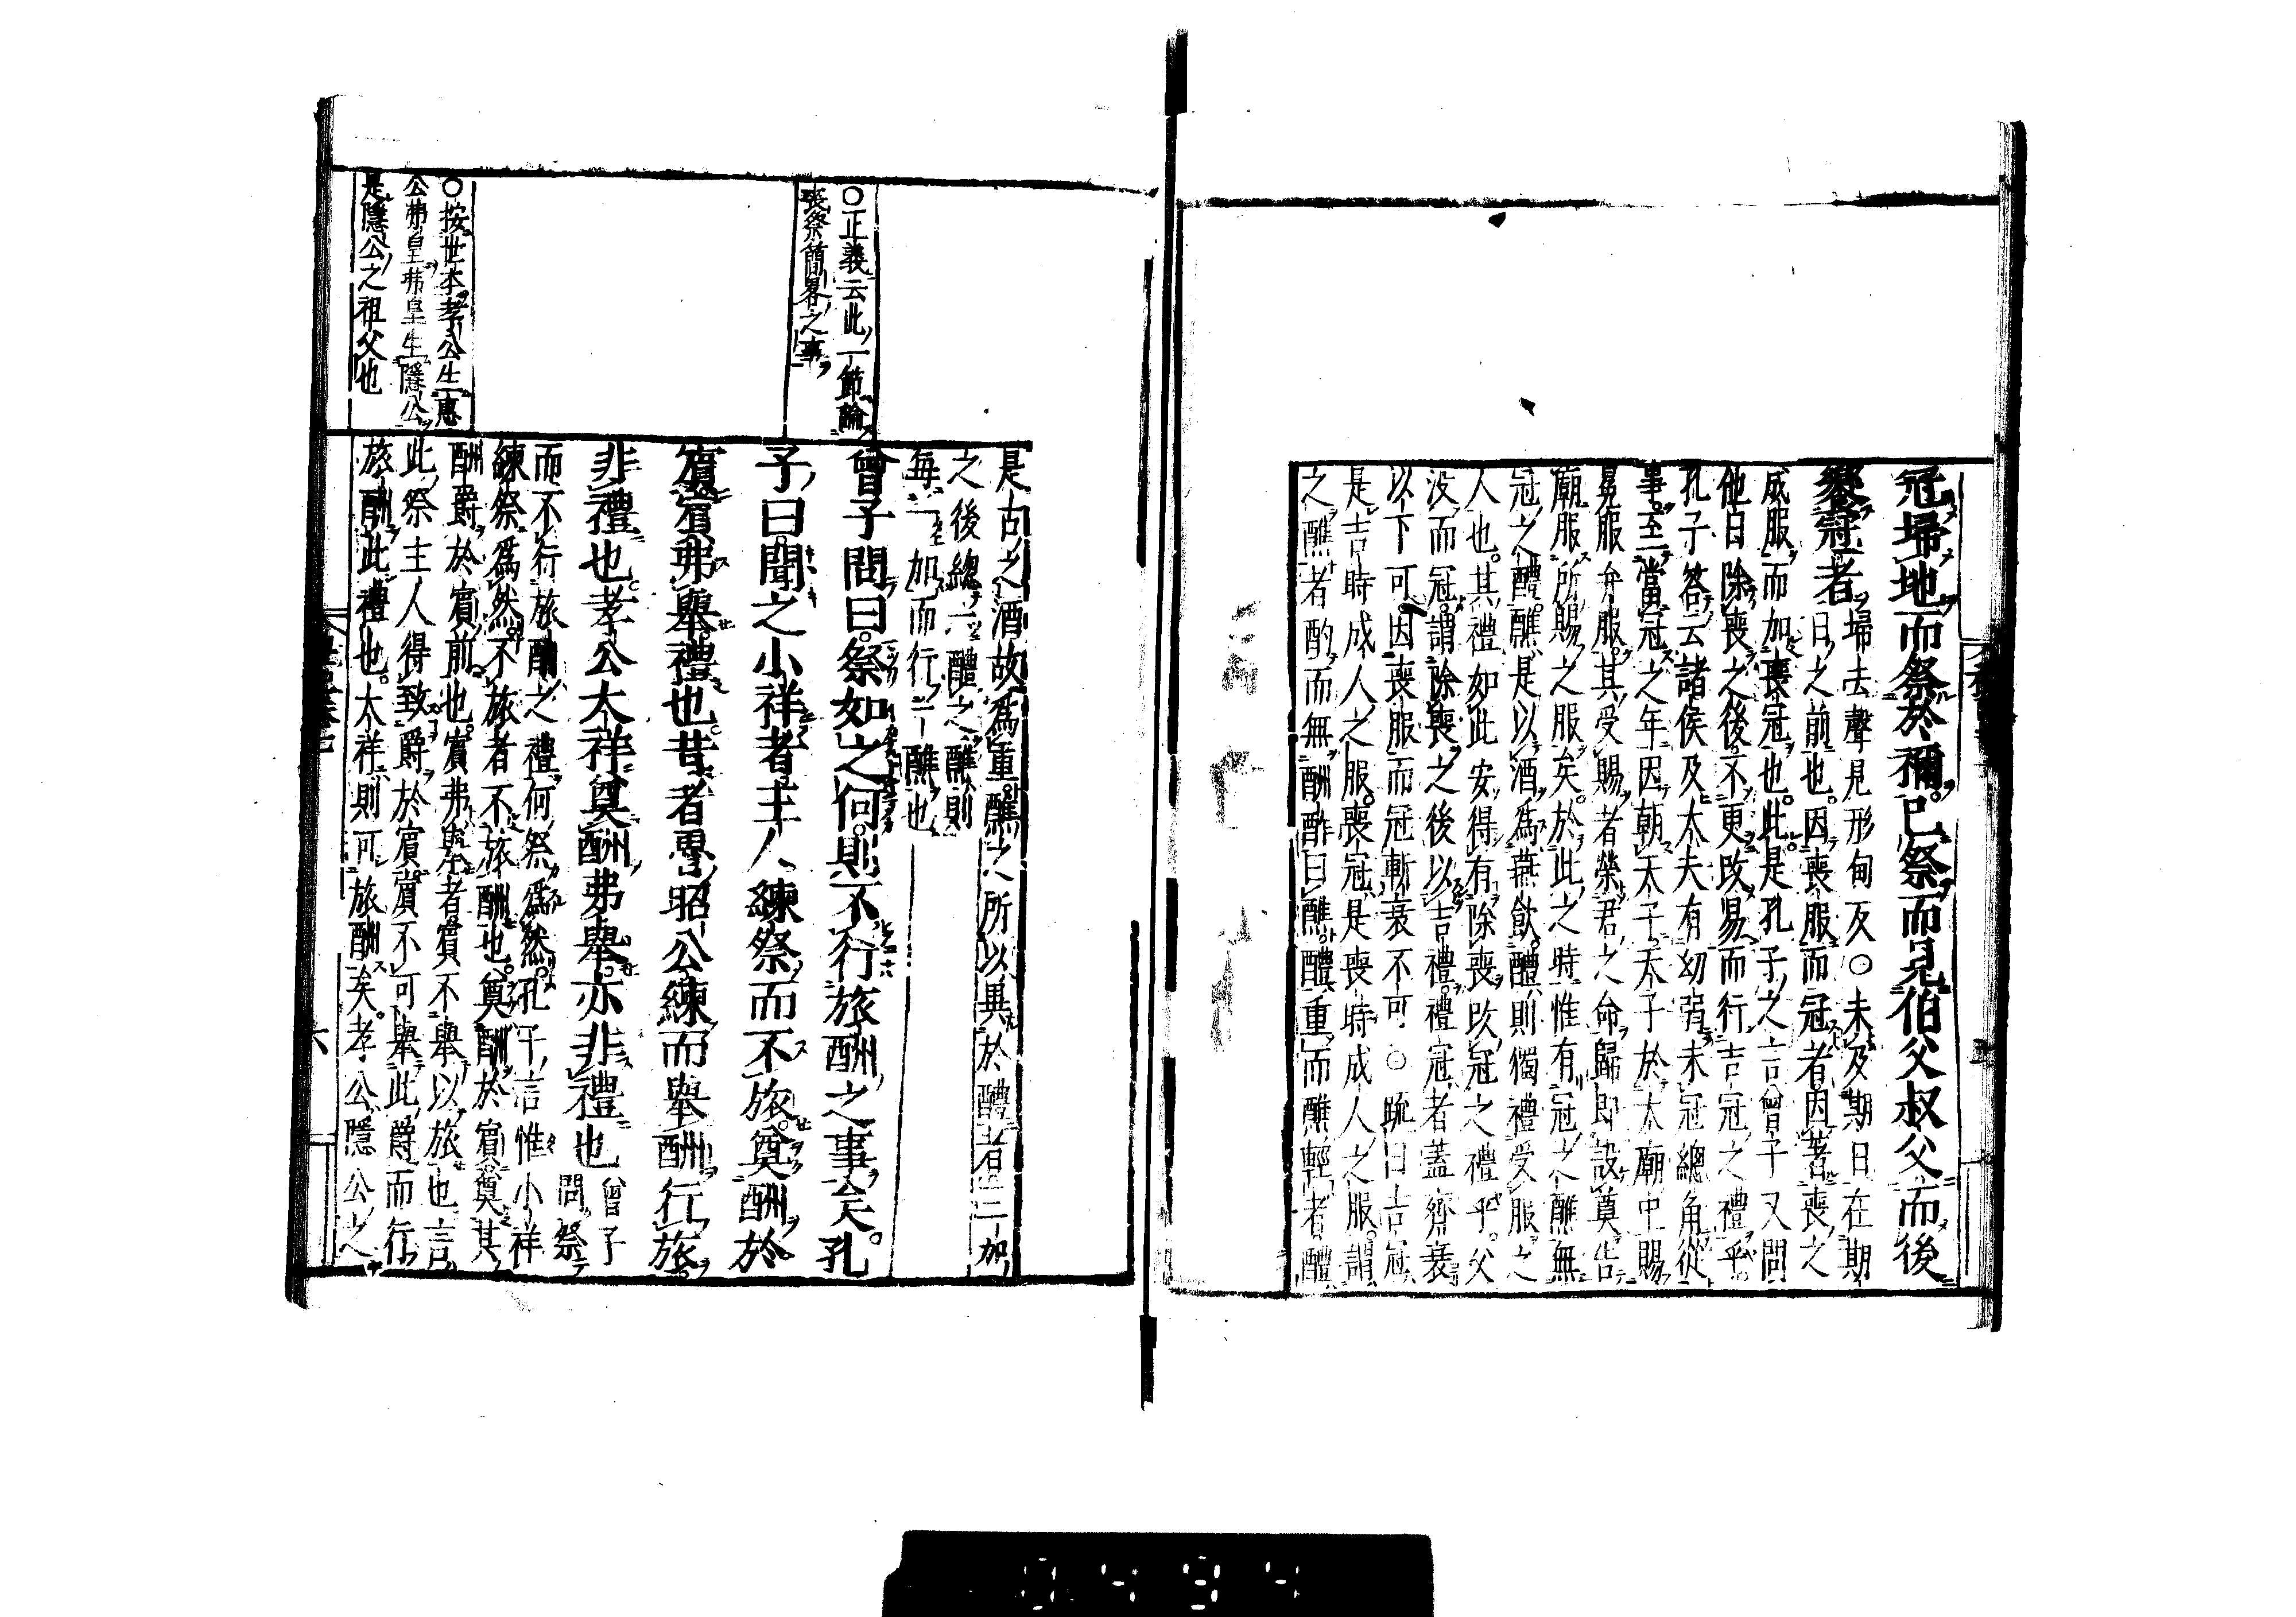 冠埽地而祭於禰已祭而見伯父叔父而後
饗冠者
埽去聲見形甸反○未及期日在期
日之前也因喪服而冠者因著喪之
成服而加喪冠也此是孔子之言曾子又問
他日除喪之後不更改易而行吉冠之禮乎
孔子答云諸侯及大夫有幼弱未冠總角從
事至當冠之年因朝天子天子於太廟中賜
冕服弁服其受賜者榮君之命歸即設奠告
廟服所賜之服矣於此之時惟有冠之醮無
冠之醴醮是以酒爲燕飲醴則獨禮受服之
人也其禮如此安得有除喪改冠之禮乎父
没而冠謂除喪之後以吉禮禮冠者蓋齊衰
以下可因喪服而冠斬衰不可○疏曰吉冠
是吉時成人之服喪冠是喪時成人之服謂
之醮者酌而無酬酢曰醮醴重而醮輕者醴
是古之酒故爲重醮之所以異於醴者三加
之後總一醴之醮則
每一加而行一醮也
○正義云此一節論
喪祭簡畧之事
曾子問曰祭如之何則不行旅酬之事矣孔
子曰聞之小祥者主人練祭而不旅奠酬於
賓賓弗舉禮也昔者魯昭公練而舉酬行旅
非禮也孝公大祥奠酬弗舉亦非禮也
曾子
問祭
而不行旅酬之禮何祭爲然孔子言惟小祥
練祭爲然不旅者不旅酬也奠酬於賓奠其
酬爵於賓前也賓弗舉者賓不舉以旅也言
此祭主人得致爵於賓賓不可舉此爵而行
旅酬此禮也大祥則可旅酬矣孝公隱公之
○按世本孝公生惠
公弗皇弗皇生隱公
是隱公之祖父也
六